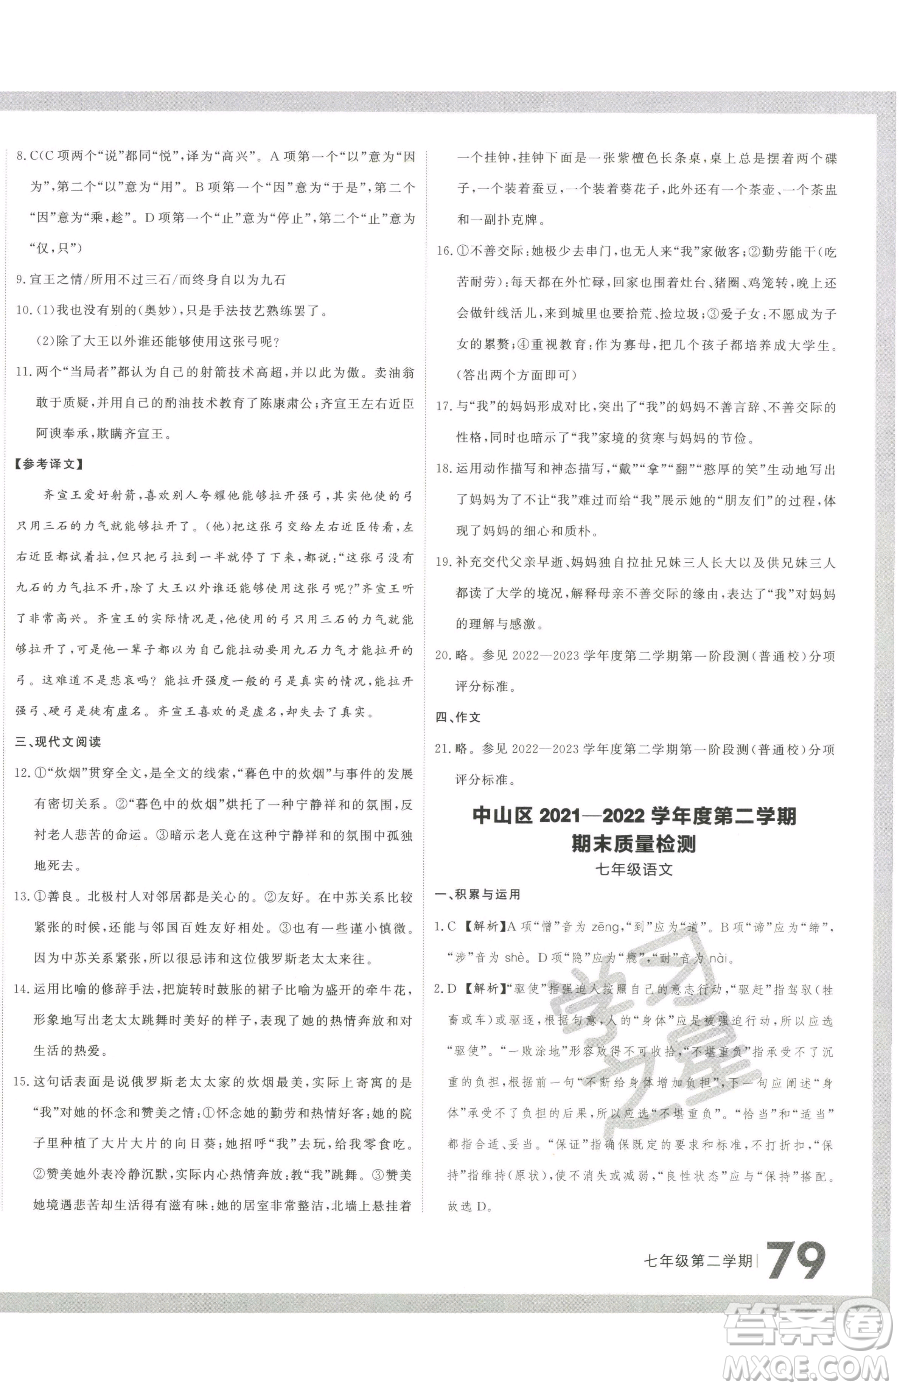 8. C(C 项两个“说”都同“悦”，译为“高兴”。A 项第一个“以”意为“因
为”，第二个“以”意为“用”。B 项第一个“因”意为“于是”，第二个
“因”意为“乘，趁”。D 项第一个“止”意为“停止”，第二个“止”意为
“仅，只”)
9. 宣王之情/所用不过三石/而终身自以为九石
10. (1)我也没有别的(奥妙)，只是手法技艺熟练罢了。
(2)除了大王以外谁还能够使用这张弓呢?
11. 两个“当局者”都认为自己的射箭技术高超，并以此为傲。卖油翁
敢于质疑，并用自己的酌油技术教育了陈康肃公；齐宣王左右近臣
阿谀奉承，欺瞒齐宣王。
【参考译文】
齐宣王爱好射箭，喜欢别人夸耀他能够拉开强弓，他使的弓
只用三石的力气就能够拉开了。(他)把这张弓交给左右近臣传看，
左右近臣都试着拉，但只把弓拉到一半就停了下来，都说：“这张弓没有
九石的力气拉不开，除了大王以外谁还能够使用这张弓呢?”齐宣王听
了非常高兴。齐宣王的实际情况是，使用的弓只用三石的力气就能
够拉开了，可他一辈子都以为自己能够拉开九石力气才能拉开的
弓。这难道不是悲哀吗?能拉开强度一般的弓是真实的情况，能拉开
强弓、硬弓是徒有虚名。齐宣王喜欢的是虚名，却失去了真实。
三、现代文阅读
12. ①“炊烟”贯穿全文，是全文的线索，“暮色中的炊烟”与事件的发展
有密切关系。②“暮色中的炊烟”烘托了一种宁静祥和的氛围，反
衬老人悲苦的命运。③暗示老人能在这种宁静祥和的氛围中安息。
13. ①善良。北极村人对邻居都是关心的。②友好。在中苏关系比较
紧张的时候，能够与邻国百姓友好相处。③也有一些谨小慎微。
因为中苏关系紧张，所以很忌讳和这位俄罗斯老太太来往。
14. 运用比喻的修辞手法，把旋转时鼓胀的裙子比喻成盛开的牵牛花，
形象地写出老太太跳舞时美好的样子，表现了她的热情奔放和对生
活的热爱。
15. 这句话表面是说俄罗斯老太太家的炊烟最美，实际上寄寓的是
“我”对她的怀念和赞美之情：①怀念她的勤劳和热情大方。她的院
子里种了大片大片的向日葵；她招呼“我”去玩，给我零食吃。
②赞美她外表冷静沉默，实际内心热情奔放：教“我”跳舞。③赞美
她境遇悲苦却生活得有滋有味：她的居室非常整洁，北墙上悬挂着
一个挂钟，挂钟下面是一张紫檀色长条桌，桌上摆着两个碟
子，一个装着蚕豆，一个装着葵花子，此外还有一个茶壶、一个茶盅
和一副扑克牌。
16. ①不善交际：她极少去串门，也无人来“我”家做客；②勤劳能干(吃
苦耐劳)：每天都在外忙碌，回家是围着灶台、猪圈、鸡笼转，晚上还
会做针线活儿，后来到城里要去拾荒、捡垃圾；③爱子女：不愿成为子
女的累赘；④重视教育：作为寡母，把几个孩子都培养成大学生。
(答出两个方面即可)
17. 与“我”的妈妈形成对比，突出了“我”的妈妈不善言辞、不善交际的
性格，同时也暗示了“我”家境的贫寒与妈妈的节俭。
18. 运用动作描写和神态描写，“戴”“拿”“翻”“憨厚的笑”生动形象地
写出了妈妈为了不让“我”难过而给“我”展示她的“朋友们”的过程，
体现了妈妈的细心和质朴。
19. 补充交代父亲早逝、妈妈独自拉扯兄妹三人长大以及供兄妹三人
都读了大学的境况，解释母亲不善交际的缘由，表达了“我”对妈妈
的理解与感激。
20. 略。参见 2022—2023 学年度第二学期第一阶段测(普通校)分项
评分标准。
四、作文
21. 略。参见 2022—2023 学年度第二学期第一阶段测(普通校)分项
评分标准。
中山区 2021—2022 学年度第二学期
期末质量检测
七年级语文
一、积累与运用
1. C 【解析】A 项“憎”音为 zēng，“到”应为“道”。B 项“谛”应为“缔”，
“涉”音为 shè。D 项“隐”应为“瘾”，“耐”音为 nài。
2. D 【解析】“驱使”指强迫人按照自己的意志行动，“驱赶”指驾驭(牲
畜或车)或驱逐，根据句意，人的“身体”应是被强迫行动，所以应选
“驱使”。“一败涂地”形容败得不可收拾，“不堪重负”指承受不了沉
重的负担，根据句意，前面“会继续增加负担”，后面一句应阐述“身
体”承受不了负担的后果，所以应选“不堪重负”。“恰当”和“适当”
都指合适、妥当。“保证”指确保既定的要求和标准，不打折扣，“保
持”指维持(原状)，使不消失或减弱，“良性状态”应与“保持”搭配。
故选 D。
学习之星
七年级第二学期 79
答案圈
MXQE.COM